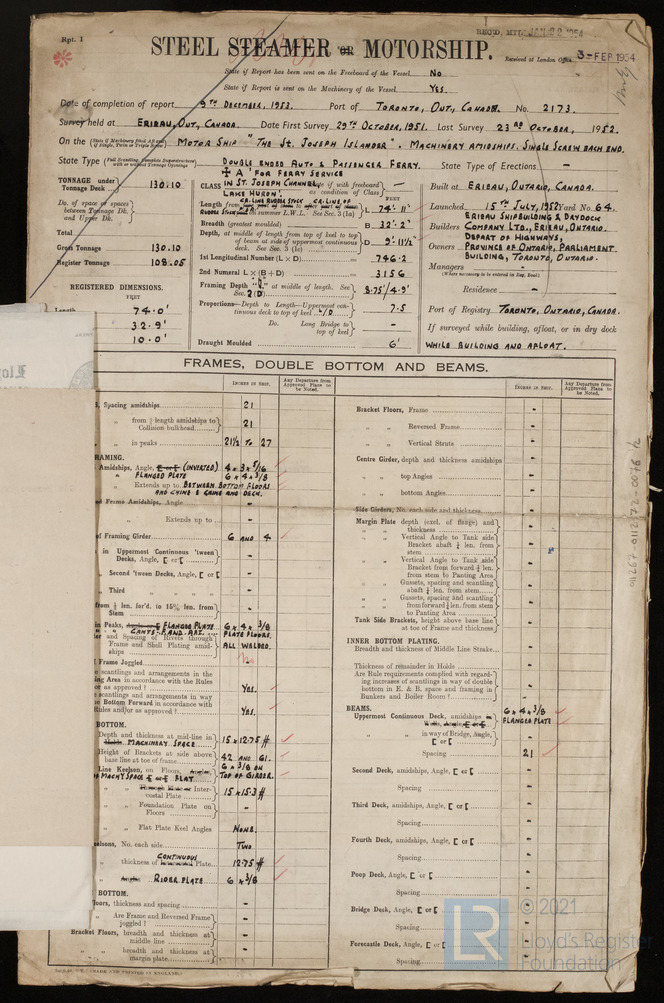 Rpt. 1
REC'D. MTL. JAN 22 1954
STEEL STEAMER OR MOTORSHIP.
Received at London Office 3 - FEB 1954
State if Report has been sent on the Freeboard of the Vessel. No
State if Report is sent on the Machinery of the Vessel. Yes.
Date of completion of report 9th December, 1953. Port of Toronto, Ont, Canada. No. 2173.
Survey held at Erieau, Ont, Canada. Date First Survey 29th October, 1951. Last Survey 23rd October, 1952.
On the (State if Machinery fitted Aft and if Single, Twin or Triple Screw) Motor Ship "The St. Joseph Islander". Machinery amidships. Single screw each end.
State Type Double ended Auto & Passenger Ferry. State Type of Erections —
TONNAGE under Tonnage Deck 130.10
Do. of space or spaces between Tonnage Dk. and Upper Dk.
Total
Gross Tonnage 130.10
Register Tonnage 108.05
REGISTERED DIMENSIONS.
FEET
Length 74.0'
32.9'
10.0'
CLASS ✠ A' for Ferry Service in St. Joseph Channel, Lake Huron. State if with freeboard as condition of Class —
FEET
L 74'. 11"
Breadth (greatest moulded) B 32'. 2"
Depth, at middle of length from top of keel to top of beam at side of uppermost continuous deck. See Sec. 3 (1c) D 9'. 11½"
1st Longitudinal Number (L × D) 746.2
2nd Numeral L × (B + D) 3156
Framing Depth "d," at middle of length. See Sec. 2(D) 8.75'/4.9'
Proportions—Depth to Length—Uppermost continuous deck to top of keel L/D 7.5
Do. Long Bridge to top of keel —
Draught Moulded 6'
Built at Erieau, Ontario, Canada.
Launched 15th July, 1952 Yard No. 64.
Builders Erieau Shipbuilding & Drydock Company Ltd., Erieau, Ontario.
Owners Depart of Highways, Province of Ontario, Parliament Building, Toronto, Ontario.
Managers
(Where necessary to be entered in Reg. Book)
Residence —
Port of Registry Toronto, Ontario, Canada.
If surveyed while building, afloat, or in dry dock
While building and afloat.
FRAMES, DOUBLE BOTTOM AND BEAMS.
INCHES IN SHIP. Any Departure from Approved Plans to be Noted.
INCHES IN SHIP. Any Departure from Approved Plans to be Noted.
Spacing amidships 21
" from ⅕ length amidships to Collision bulkhead 21
" in peaks 21½ to 27
FRAMING.
Amidships, Angle, [ or [ (inverted) 4 × 3 × 5/16
" Flanged plate 6 × 4 × 3/8
" Extends up to Between bottom floors and chine & chine and deck.
Frame Amidships, Angle
" Extends up to —
of Framing Girder 6 and 4
in Uppermost Continuous 'tween Decks, Angle, [ or [ -
" Second 'tween Decks, Angle, [ or [ -
" Third " " " -
from ⅕ len. for'd. to 15% len. from Stem -
in Peaks, Flanged plate 6 × 4 × 3/8
Plate floors.
and Spacing of Rivets through Frame and Shell Plating amidships All welded.
Frame Joggled No
scantlings and arrangements in the Area in accordance with the Rules or as approved? Yes.
scantlings and arrangements in way Bottom Forward in accordance with Rules and/or as approved? Yes.
BOTTOM.
Depth and thickness at mid-line in Machinery Space 15 × 12.75 #
Height of Brackets at side above base line at toe of frame 42 and 61.
Line Keelson, on Floors, in Mach'y Space Flat 6 × 3/8 on top of girder.
" " Intercostal Plate 15 × 15.3 #
" " Foundation Plate on Floors -
" " Flat Plate Keel Angles None.
Keelsons, No. each side Two
" thickness of Continuous Plate 12.75 #
" Rider Plate 6 × 3/8
BOTTOM.
Floors, thickness and spacing -
" Are Frame and Reversed Frame joggled? -
Bracket Floors, breadth and thickness at middle line -
" " breadth and thickness at margin plate -
Bracket Floors, Frame -
" " Reversed Frame -
" " Vertical Struts -
Centre Girder, depth and thickness amidships -
" " top Angles -
" " bottom Angles -
Side Girders, No. each side and thickness -
Margin Plate depth (excl. of flange) and thickness -
" " Vertical Angle to Tank side Bracket abaft ¼ len. from stem -
" " Vertical Angle to Tank side Bracket from forward ¼ len. from stem to Panting Area -
" " Gussets, spacing and scantling abaft ¼ len. from stem -
" " Gussets, spacing and scantling from forward ¼ len. from stem to Panting Area -
Tank Side Brackets, height above base line at toe of Frame and thickness -
INNER BOTTOM PLATING.
Breadth and thickness of Middle Line Strake -
Thickness of remainder in Holds -
Are Rule requirements complied with regarding increases of scantlings in way of double bottom in E. & B. space and framing in Bunkers and Boiler Room? -
BEAMS.
Uppermost Continuous Deck, amidships 6 × 4 × 3/8 Flanged plate
" " in way of Bridge, Angle, [ or [ -
Spacing 21
Second Deck, amidships, Angle, [ or [ -
Spacing -
Third Deck, amidships, Angle, [ or [ -
Spacing -
Fourth Deck, amidships, Angle, [ or [ -
Spacing -
Poop Deck, Angle, [ or [ -
Spacing -
Bridge Deck, Angle, [ or [ -
Spacing -
Forecastle Deck, Angle, [ or [ -
Spacing -
011267-011272-0076 1/2
LR
© 2021
Lloyd's Register
Foundation